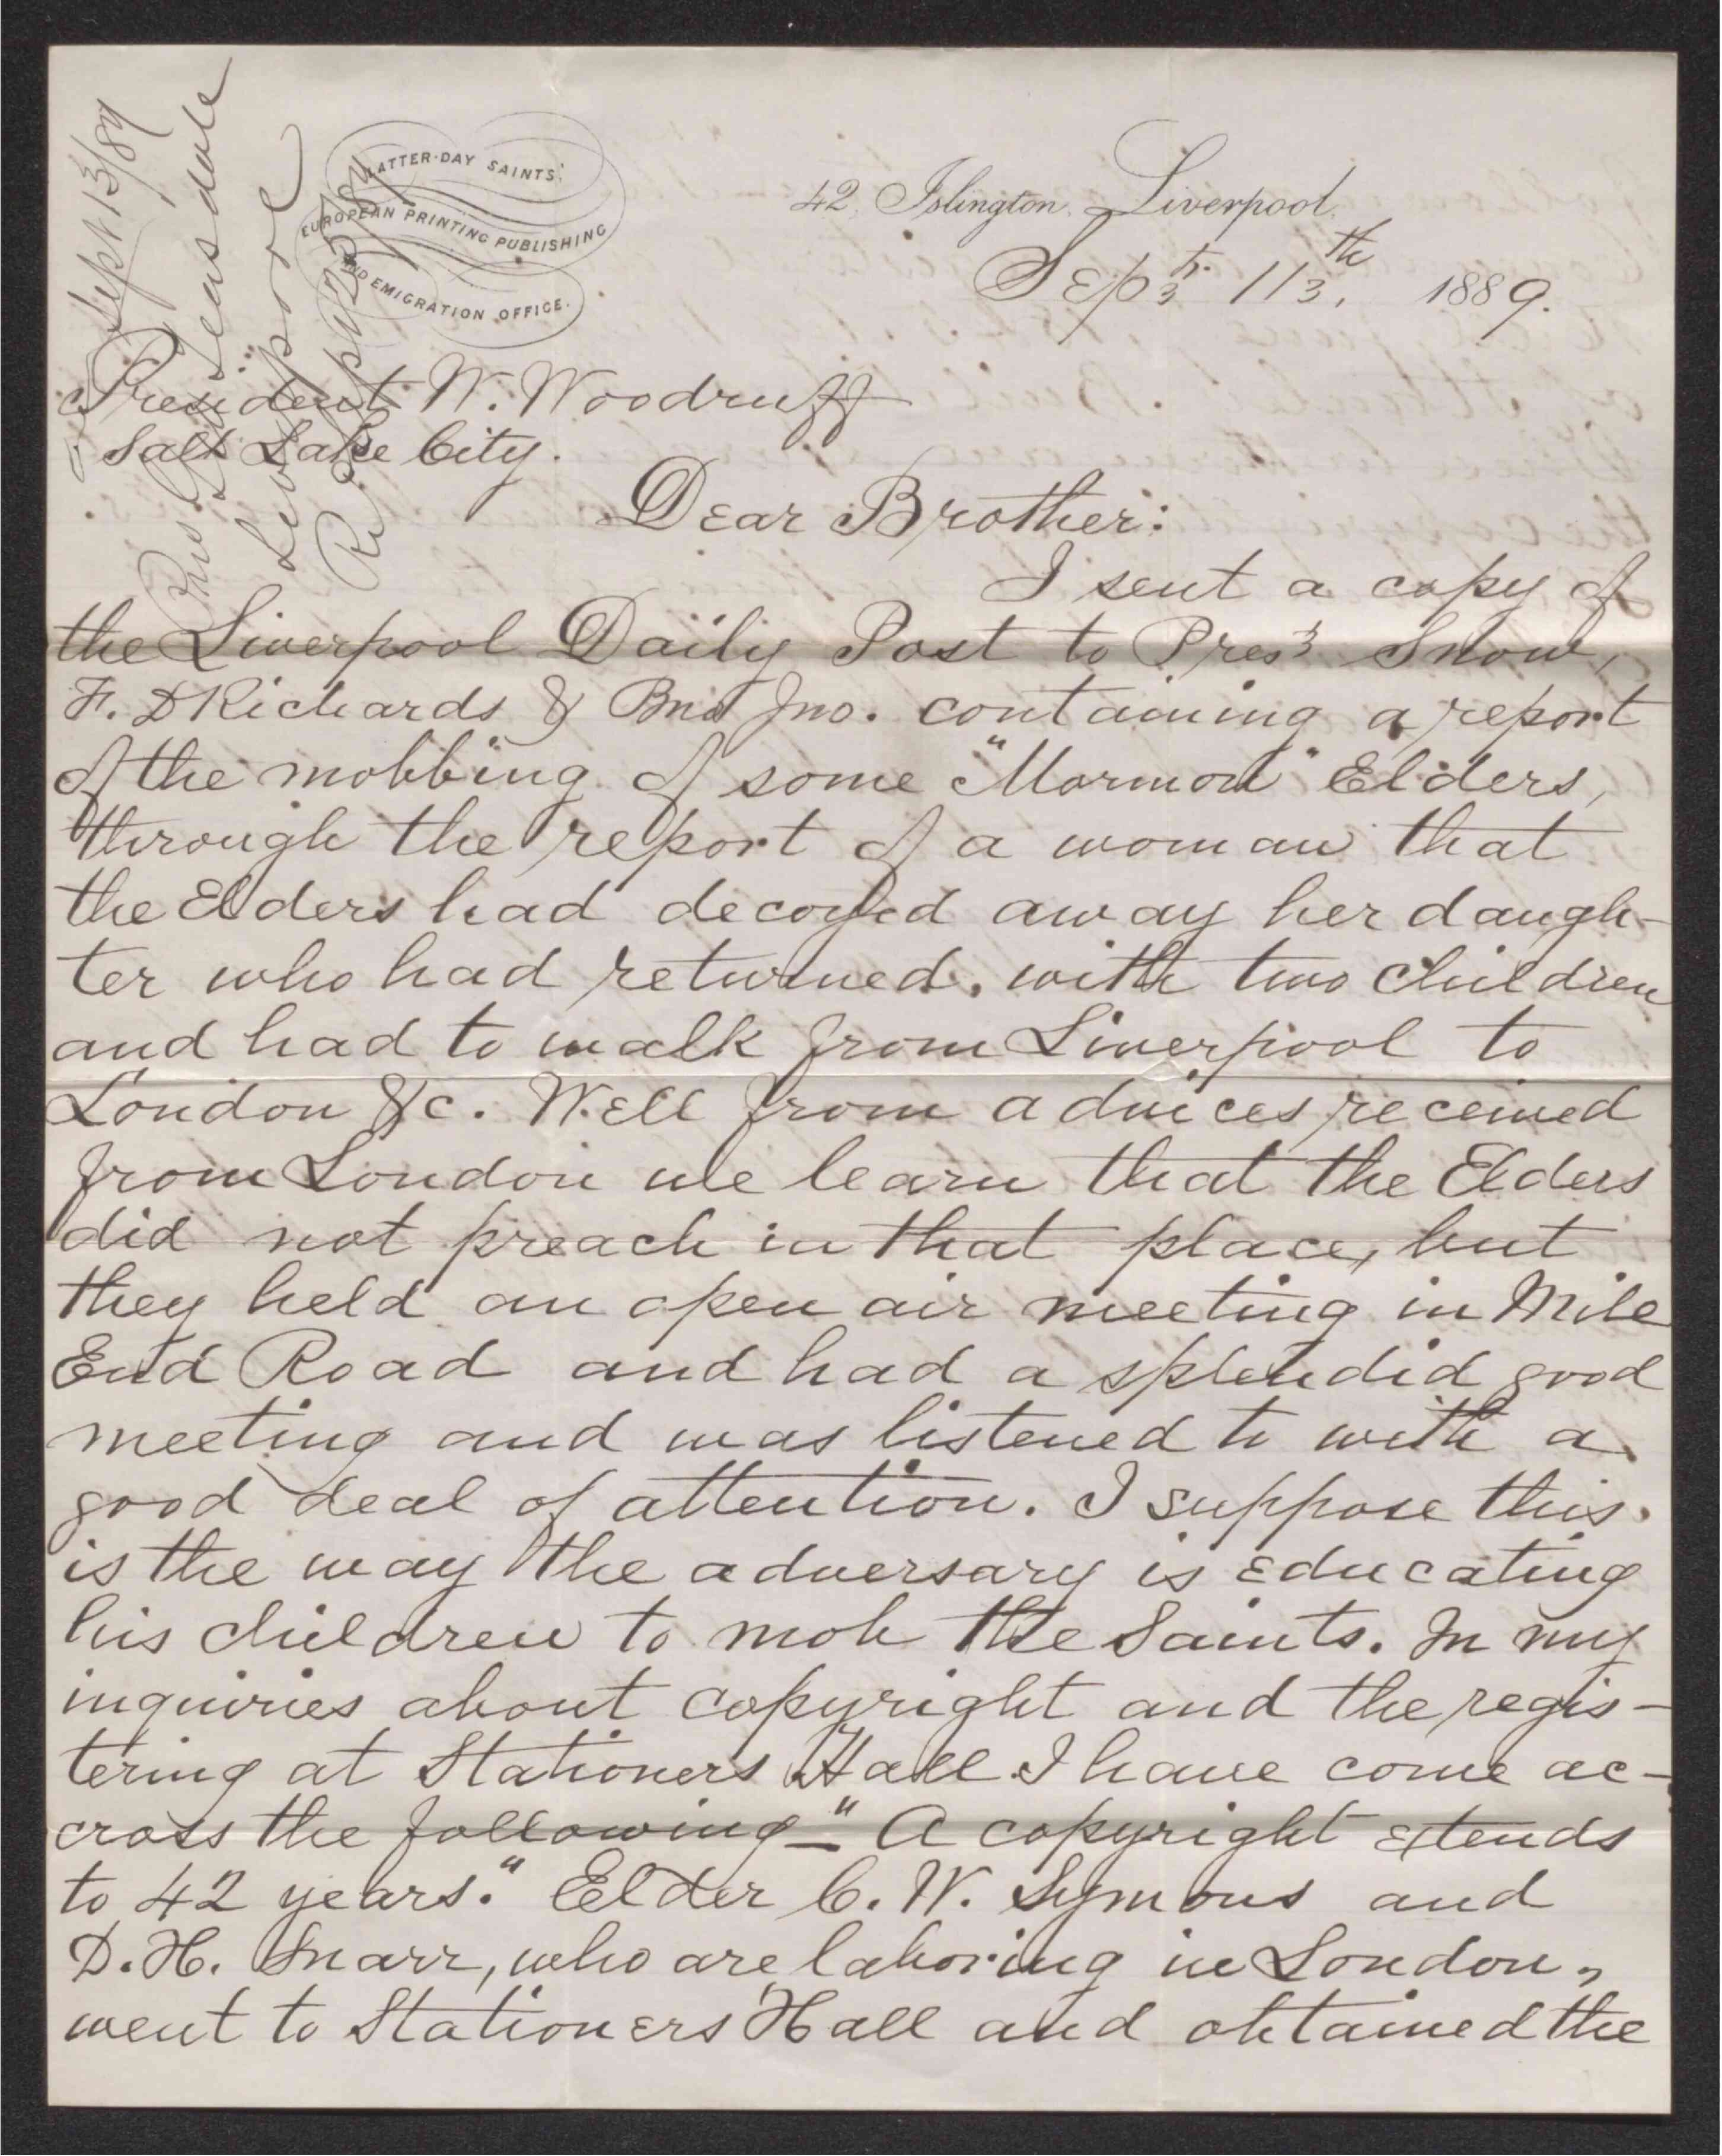 Sept 13/89
Geo Teasdale
Liverpool
Rec Sept 25/89
LATTER-DAY SAINTS'
EUROPEAN PRINTING PUBLISHING
AND EMIGRATION OFFICE.
42, Islington, Liverpool,
Sept. 13th, 1889.
President W. Woodruff
Salt Lake City.
Dear Brother:
I sent a copy of
the Liverpool Daily Post to Pres's Snow,
F. D Richards & Bro Jno. containing a report
of the mobbing of some "Mormon" Elders,
through the report of a woman that
the Elders had decoyed away her daugh-
ter who had returned, with two children
and had to walk from Liverpool to
London &c. Well from advices received
from London we learn that the Elders
did not preach in that place, but
they held an open air meeting in Mile
End Road and had a splendid good
meeting and was listened to with a
good deal of attention. I suppose this
is the way the adversary is educating
his children to mob the Saints. In my
inquiries about copyright and the regis-
tering at Stationers Hall I have come ac-
cross the following—"A copyright extends
to 42 years." Elder C. W. Symons and
D. H. Snarr, who are laboring in London,
went to Stationers Hall and obtained the